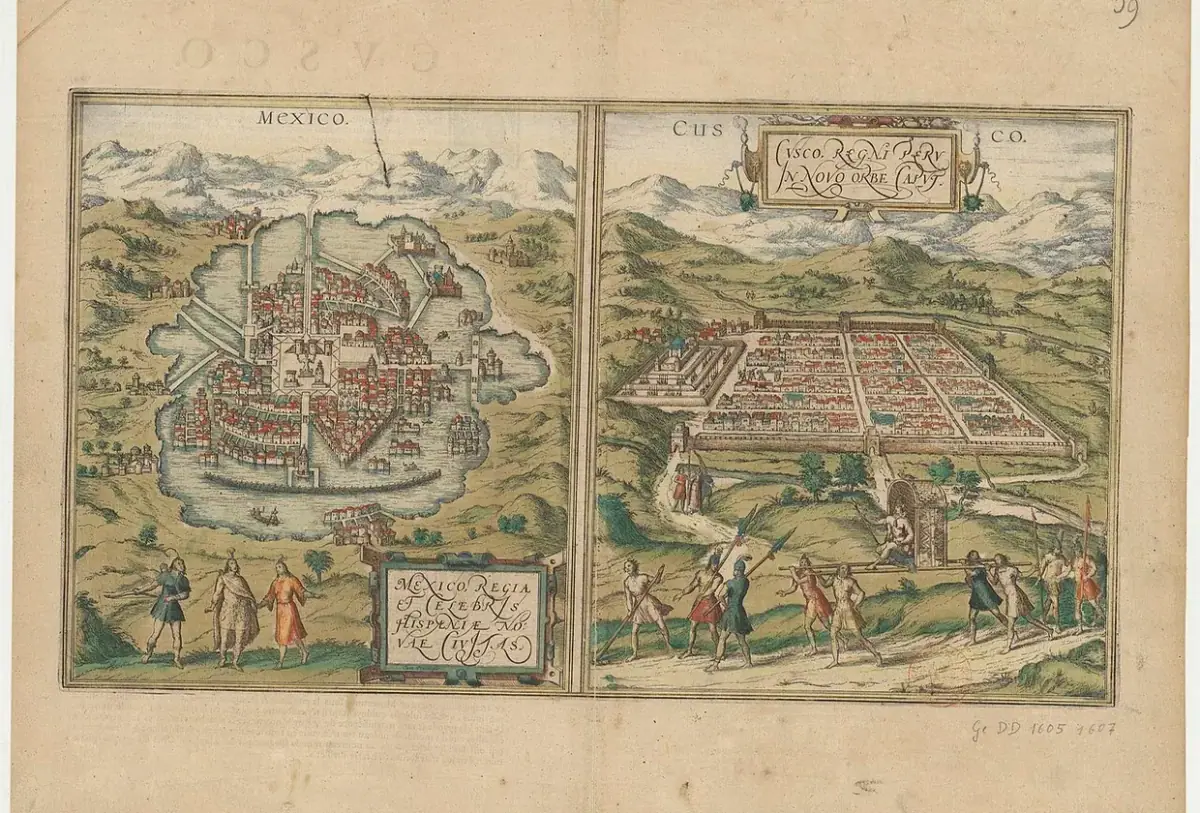 59
CVSCO
MEXICO.
CUSCO.
CVSCO, REGNI PERV
IN NOVO ORBE CAPVT.
MEXICO, REGIA
ET CELEBRIS
HISPANIÆ NO
VAE CIVITAS.
Ge DD 1605 1607